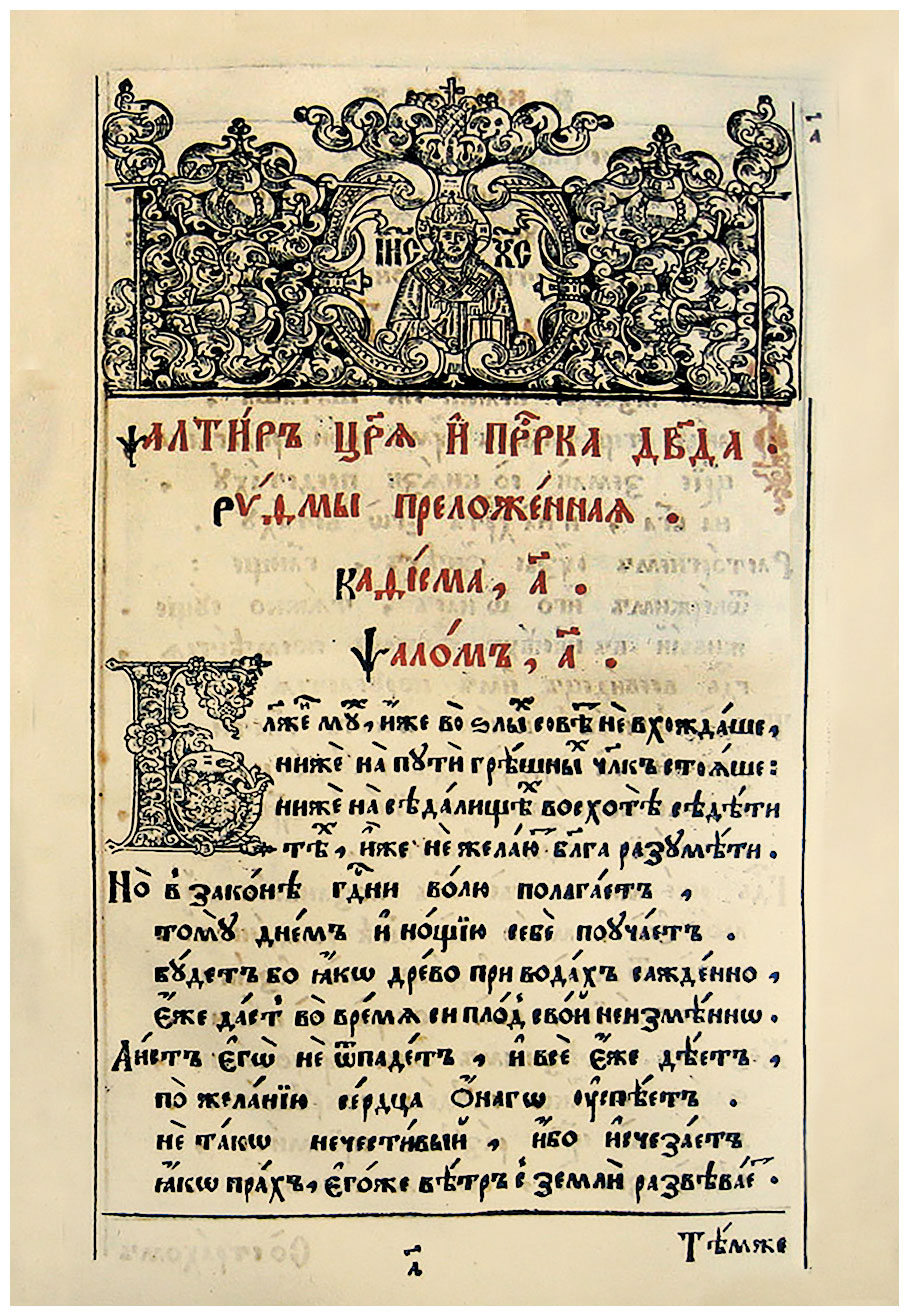 І҃С Х҃С
а҃
Ѱалти́рь цр҃ѧ и҆ прⷪ҇рка дв҃да .
Рѵ́ѳмы преложе́ннаѧ .
Каѳі́сма , а҃ .
Ѱало́мъ , а҃ .
Бл҃же́нъ мꙋ́жъ, и҆́же во̀ ѕлы́хъ совѣ́тъ нѐ вхожда́ше ,
нижѐ на̀ путѝ грѣ́шныхъ чл҃къ стоѧ́ше :
нижѐ на̀ сѣда́лищѣхъ восхотѣ́ сѣдѣ́ти
тѣ́хъ , и҆̀же нѐ жела́ютъ бл҃га разумѣ́ти .
Но̀ в̾ зако́нѣ гдⷭ҇ни во́лю полага́етъ ,
томꙋ̀ дне́мъ и҆ но́щїю себѐ поуча́етъ .
бꙋ́детъ бо ꙗ҆́кѡ дре́во при вода́хъ сажде́нно ,
є҆́же дае́т̾ во̀ вре́мѧ си пло́д̾ сво́й неизмѣ́ннѡ .
Ли́стъ є҆гѡ̀ нѐ ѿпаде́тъ , и҆ всѐ є҆́же дѣ́етъ ,
по̀ жела́нїю се́рдца ѻ҆́нагѡ ᲂу҆спѣ́етъ .
нѐ та́кѡ нечести́вый , и҆́бо и҆счеза́етъ
ꙗ҆́кѡ пра́хъ, є҆го́же вѣ́тръ с̾ землѝ развѣва́етъ .
а҃
Тѣ́мже